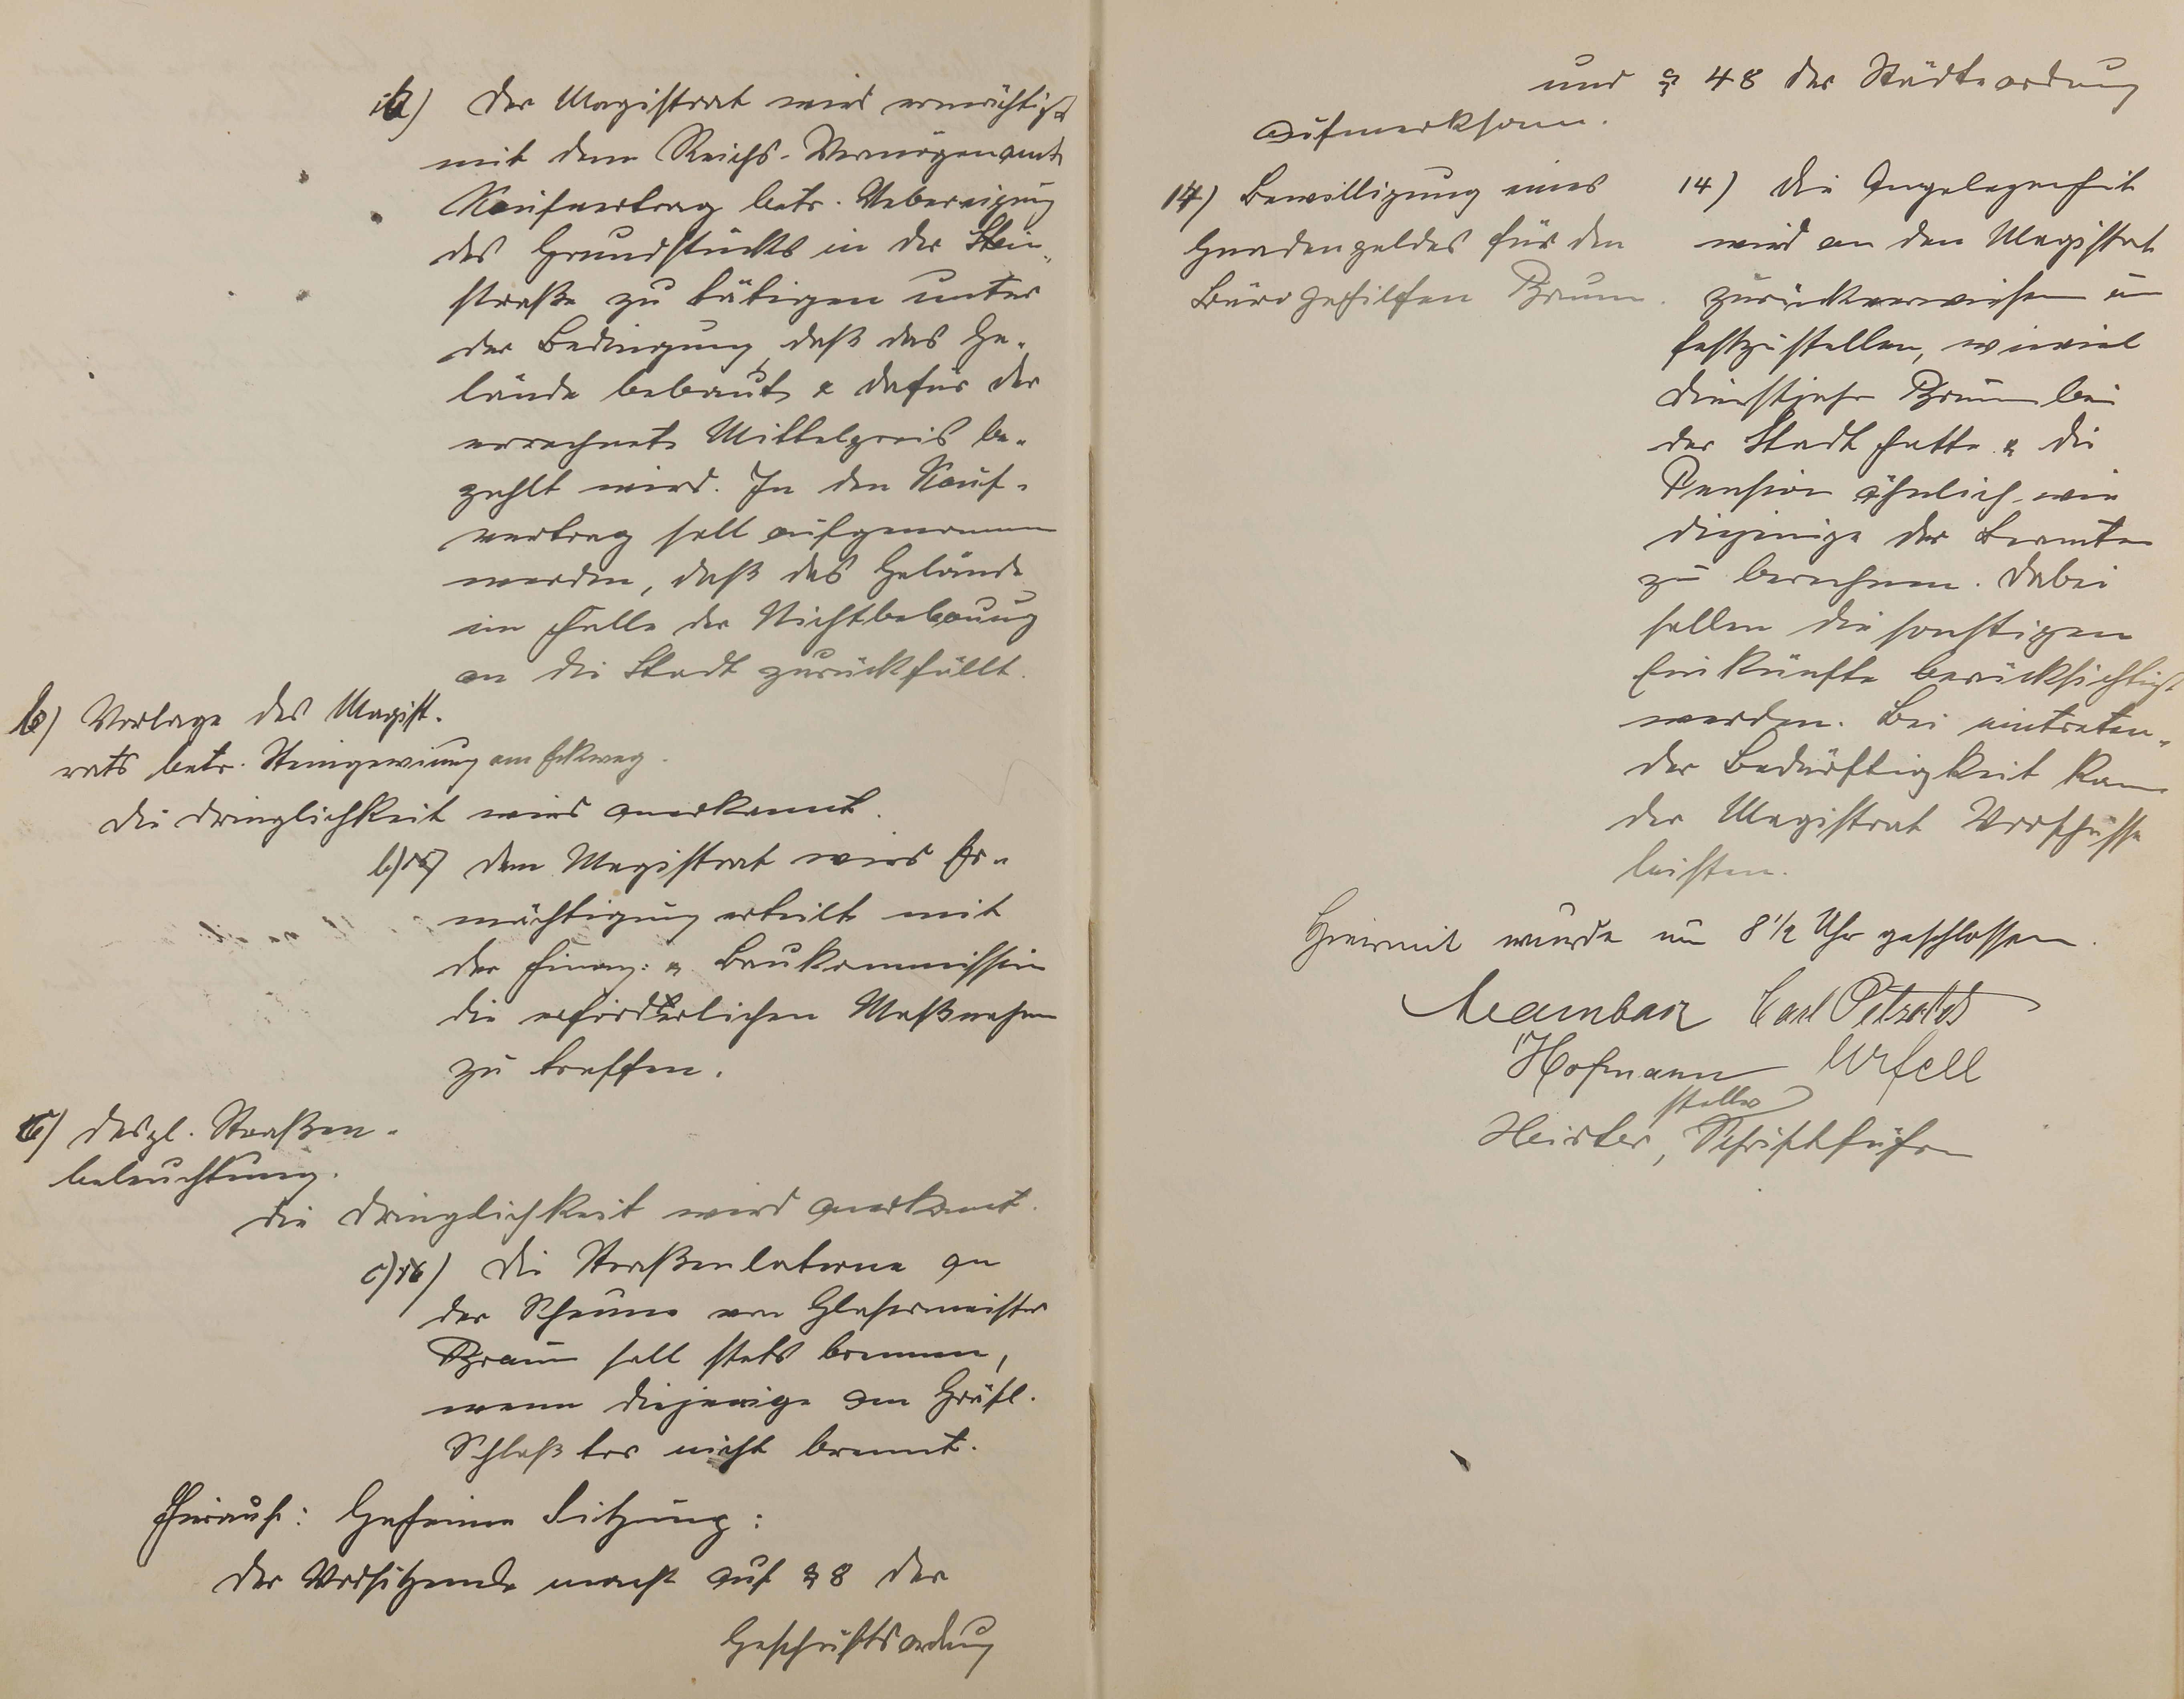 a) Der Magistrat wird ermächtigt
mit dem Reichs-Vermögensamt
Kaufvertrag betr. Uebereignung
des Grundstücks in der Stein-
straße zu tätigen unter
der Bedingung, daß das Ge-
lände bebaut & dafür der
errechnete Mittelpreis be-
zahlt wird. In den Kauf-
vertrag soll aufgenommen
werden, daß das Gelände
im Falle der Nichtbebauung
an die Stadt zurückfällt.
b) Vorlage des Magist-
rats betr. Steingewinung am Eckweg.
Die Dringlichkeit wird anerkannt.
b) Dem Magistrat wird Er-
mächtigung erteilt mit
der Finanz- & Baukommission
die erforderlichen Maßnahmen
zu treffen.
c) Desgl. Straßen-
beleuchtung.
Die Dringlichkeit wird anerkannt.
c) Die Straßenlaterne an
der Scheune von Glasermeister
Braun soll stets brennen,
wenn diejenige am Gräfl.
Schloßtor nicht brennt.
Hierauf: Geheime Sitzung:
Der Vorsitzende macht auf § 8 der
Geschäftsordnung
und § 48 der Städteordnung
aufmerksam.
14) Bewilligung eines
Gnadengeldes für den
Bürogehilfen Braun.
14) Die Angelegenheit
wird an den Magistrat
zurückverwiesen um
festzustellen, wieviel
Dienstjahre Braun bei
der Stadt hatte & die
Pension ähnlich wie
diejenige der Beamten
zu berechnen. Dabei
sollen die sonstigen
Einkünfte berücksichtigt
werden. Bei eintreten-
der Bedürftigkeit kann
der Magistrat Vorschüsse
leisten.
Hiermit wurde um 8½ Uhr geschlossen.
Carl Petzold
Hofmann Urfell
stellv
Heister, Schriftführer